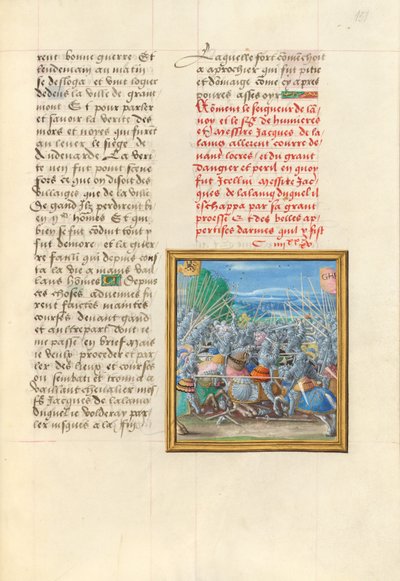 181
rent bonne guerre Et
lendemain au matin
se desloga et vint logier
dedens la ville de grant
mont Et pour parler
et savoir la verite des
mors et noyes qui furēt
au lever le siege de
Audenarde La veri
te nen fut point sceue
fors ce que on disoit des
villaiges que de la ville
de gand Ilz perdirent bi
en hōmes Et qui
bien se fut conduit tout y
fut demore et la guer
re fanli qui depuis cons
ta la vie a mains vail
lans hōmes Depuis
ces choses advenues fu
rent faictes maintes
courses devant gand
et aultrepart dont ie
me passe en brief Mais
ie veulx proceder et par
ler des lieux et courses
ou sembati et trouva le
vaillant chevalier mes
sᵉ Jacques de lalaing
Duquel ie voldray par
ler iusques a la fin
Laquelle fort cōmēchoit
a aprochier qui fut pitie
et dōmaige come cy apres
pourres asses oyr
Cōment le seigneur de la
noy et le sʳ de humieres
et messire Jacques de la
laing allerent courre de
vant locres et du grant
dangier et peril en quoy
fut Icellui Messire Jac
ques de lalaing duquel il
eschappa par sa grant
proesse Et des belles ap
pertises darmes quil y fist